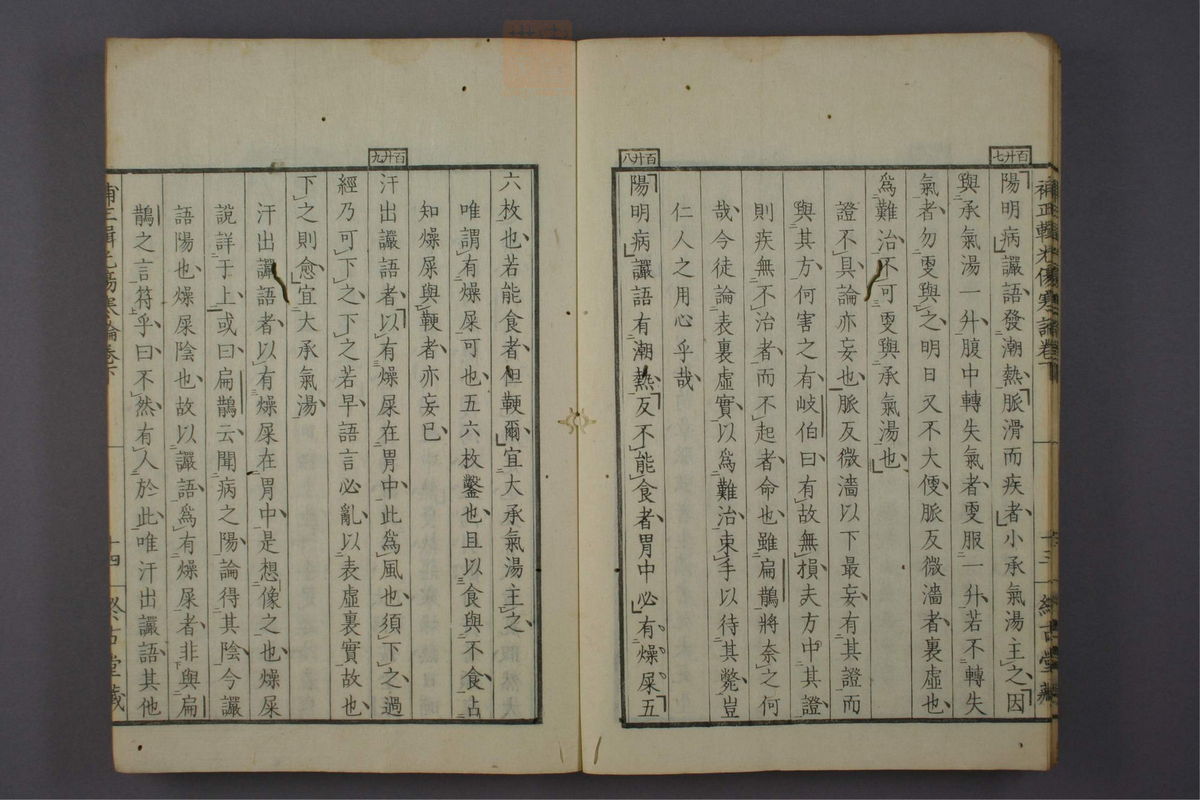 百廿七
陽明病讝語發潮熱脈滑而疾者小承氣湯主之因
與承氣湯一升腹中轉失氣者更服一升若不轉失
氣者勿更與之明日又不大便脈反微濇者裏虛也
爲難治不可更與承氣湯也
證不具論亦妄也脈反微濇以下最妄有其證而
與其方何害之有岐伯曰有故無損夫方中其證
則疾無不治者而不起者命也雖扁鵲將奈之何
哉今徒論表裏虛實以爲難治束手以待其斃豈
仁人之用心乎哉
百廿八
陽明病讝語有潮熱反不能食者胃中必有燥屎五
六枚也若能食者但鞕爾宜大承氣湯主之
唯謂有燥屎可也五六枚鑿也且以食與不食占
知燥屎與鞕者亦妄已
百廿九
汗出讝語者以有燥屎在胃中此爲風也須下之過
經乃可下之下之若早語言必亂以表虛裏實故也
下之則愈宜大承氣湯
汗出讝語者以有燥屎在胃中是想像之也燥屎
說詳于上或曰扁鵲云聞病之陽論得其陰今讝
語陽也燥屎陰也故以讝語爲有燥屎者非與扁
鵲之言符乎曰不然有人於此唯汗出讝語其他
補正輯光傷寒論卷下
十四